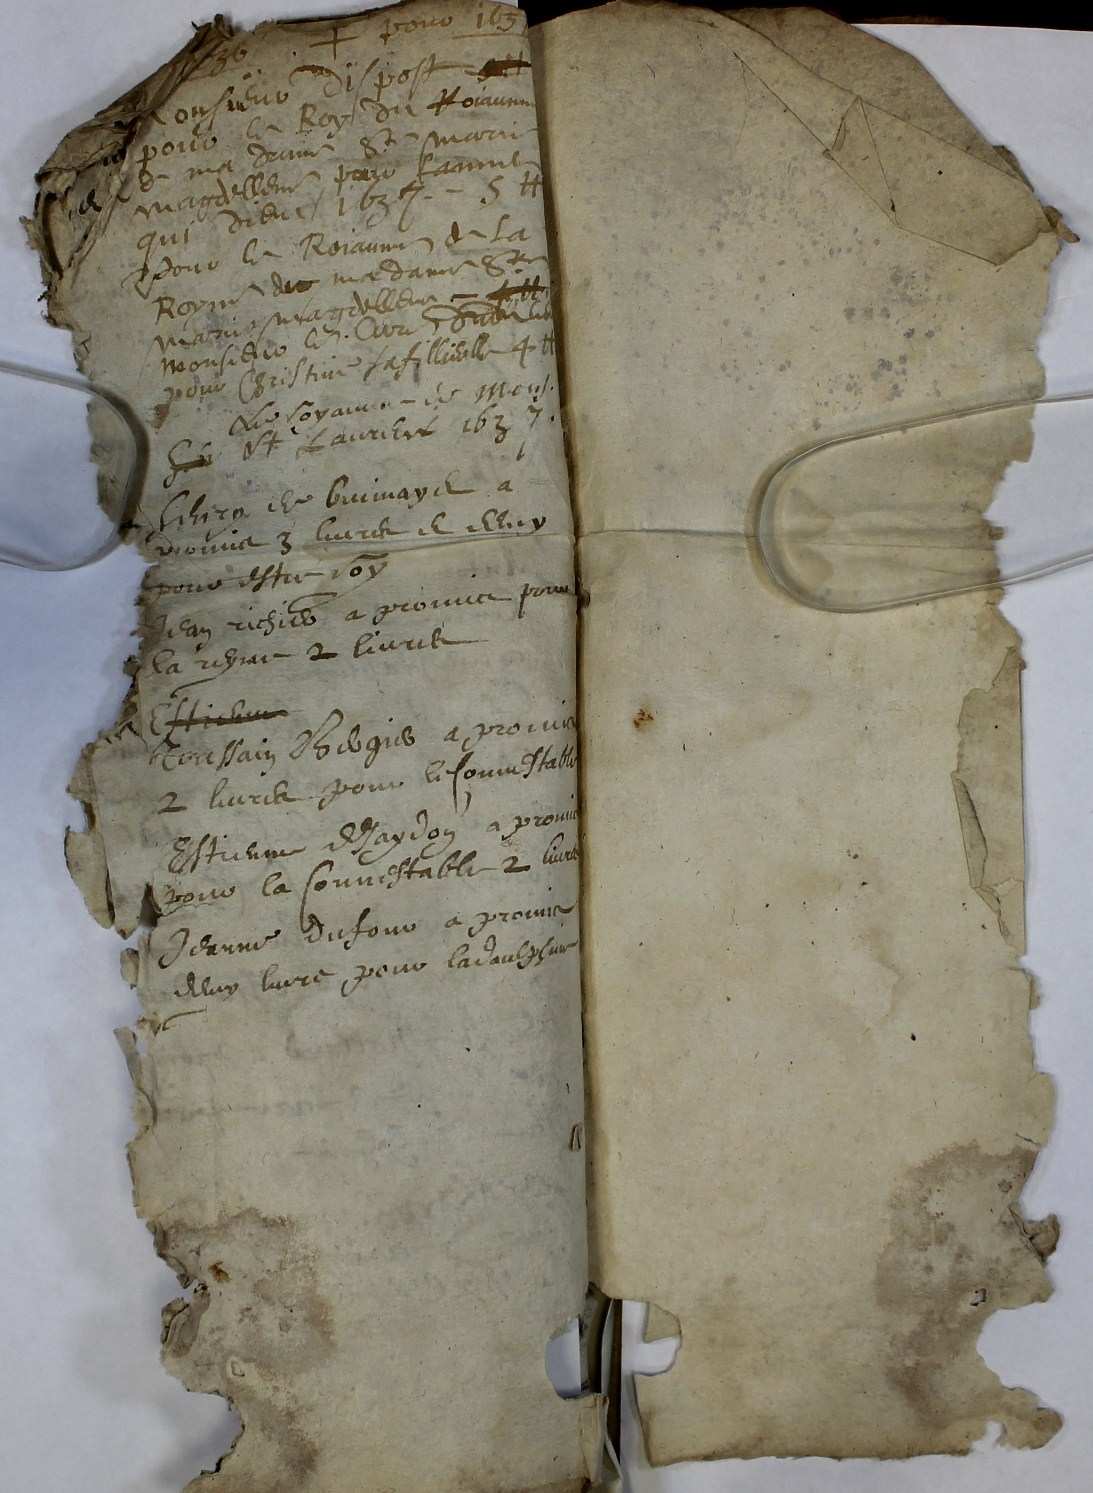 36 + pour 163
Monsieur Dispost
pour le Roy du Roiaume
de ma dame Ste Marie
magdellene pour Lannee
qui vient 1637 - 5 ₶
Pour le Roiaume de La
Royne de madame Ste
Marie magdellene - 4 ₶
Monsieur le Curé
pour Christine sa fillieulle 4 ₶
Le royaume de Mons.
St Laurent 1637.
de a
promis 3 livres et demy
pour estre roy
Jean richier a promis pour
la reyne 2 livres
Estienne
Toussain Bergier a promis
2 livres pour le connestable
Estienne a promis
pour la connestable 2 livres
Jeanne dufour a promis
deux livre pour la daulphine